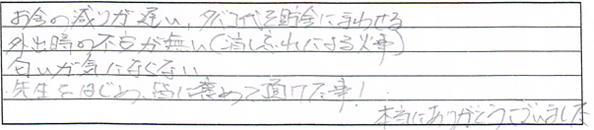 お金の減りが遅い、タバコ代を貯金にまわせる
外出時の不安が無い(消し忘れによる火事)
匂いが気にならない
先生をはじめ、皆に褒めて頂けた事!
本当にありがとうございました